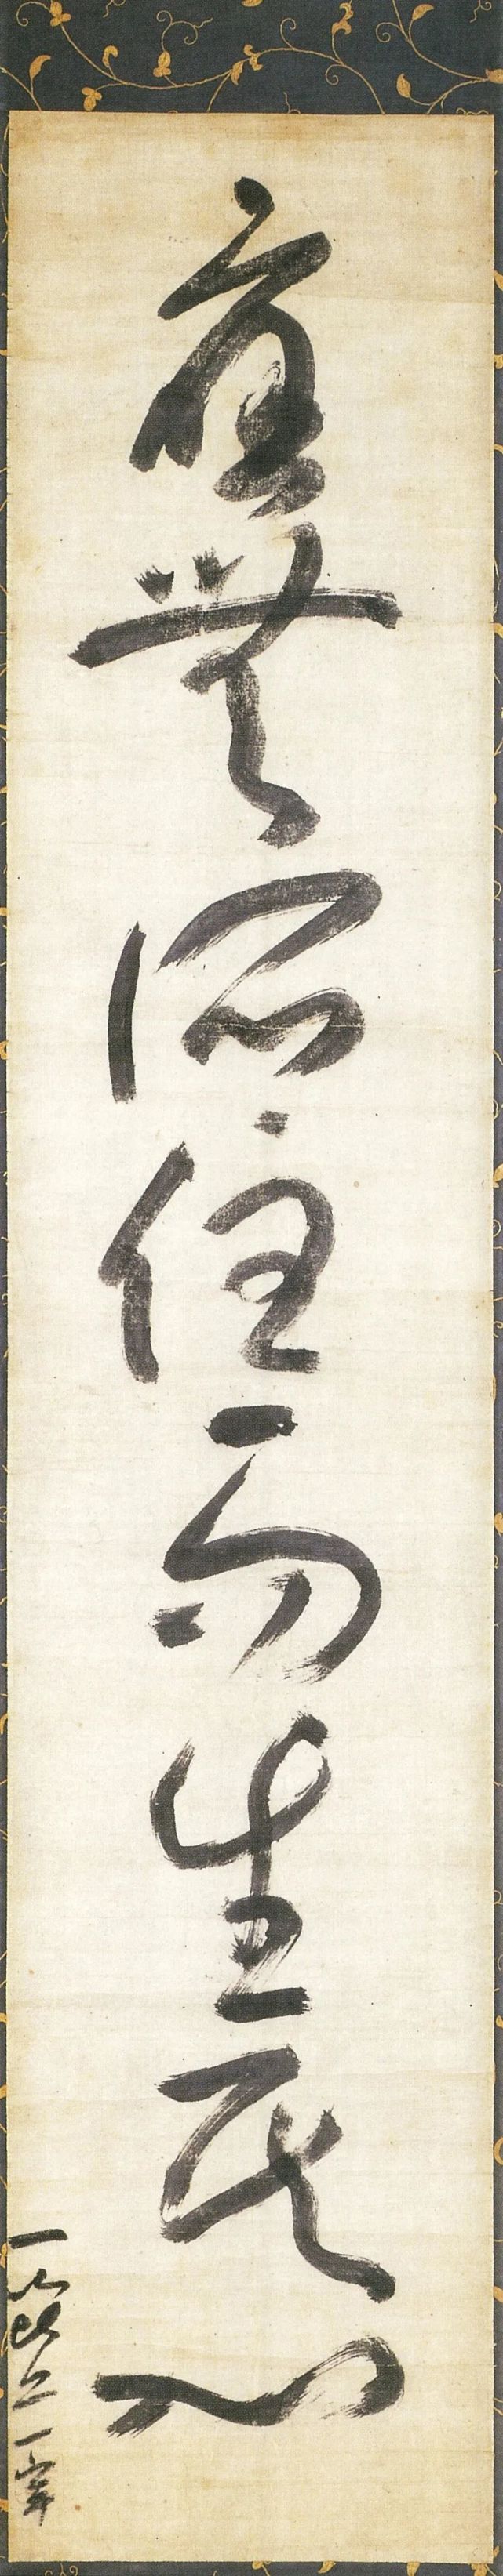 應無所住而生其心
一山比丘一寧